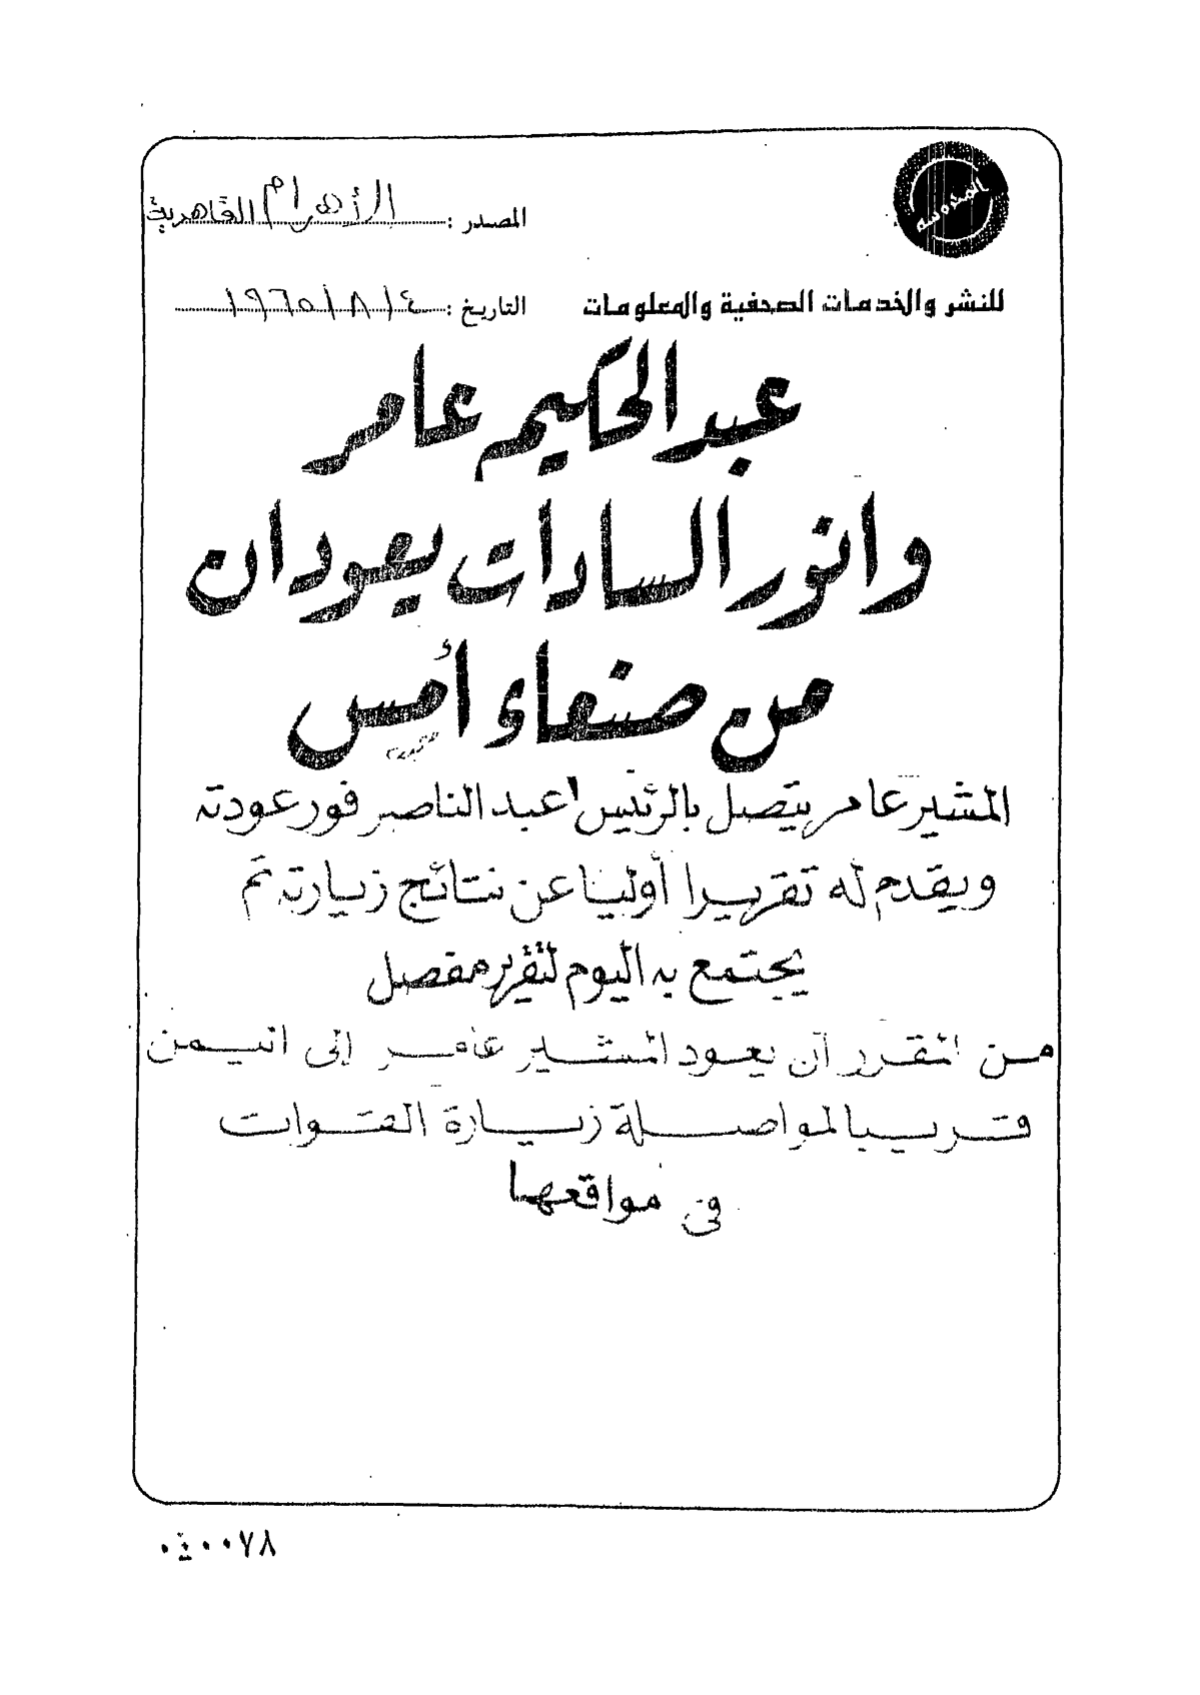 المصدر : الأهرام القاهرية
للنشر والخدمات الصحفية والمعلومات
التاريخ : ٤ / ٨ / ١٩٦٥
عبد الحكيم عامر
وانور السادات يعودان
من صنعاء أمس
المشير عامر يتصل بالرئيس عبد الناصر فور عودته
ويقدم له تقريرا أوليا عن نتائج زيارته ثم
يجتمع به اليوم لتقرير مفصل
من المقرر أن يعود المشير عامر إلى اليمن
قريبا لمواصلة زيارة القوات
فى مواقعها
٠٤٠٠٧٨